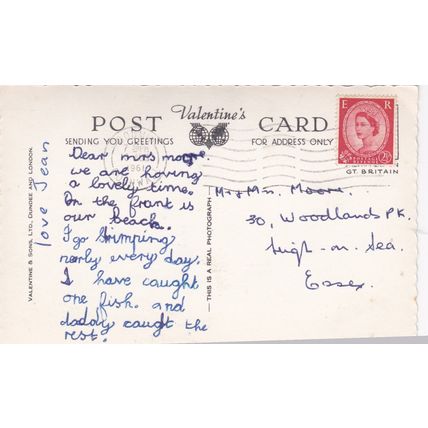 Valentine's
POST CARD
SENDING YOU GREETINGS
FOR ADDRESS ONLY
E R
2½
GT. BRITAIN
1961
Dear mrs moore.
we are having
a lovely time.
In the front is
our beach.
I go shrimping
nearly every day.
I have caught
one fish. and
daddy caugt the
rest.
love Jean
VALENTINE & SONS LTD., DUNDEE AND LONDON.
— THIS IS A REAL PHOTOGRAPH —
Mr & Mrs. Moore.
30, Woodlands PK.
Leigh-on-Sea.
Essex.